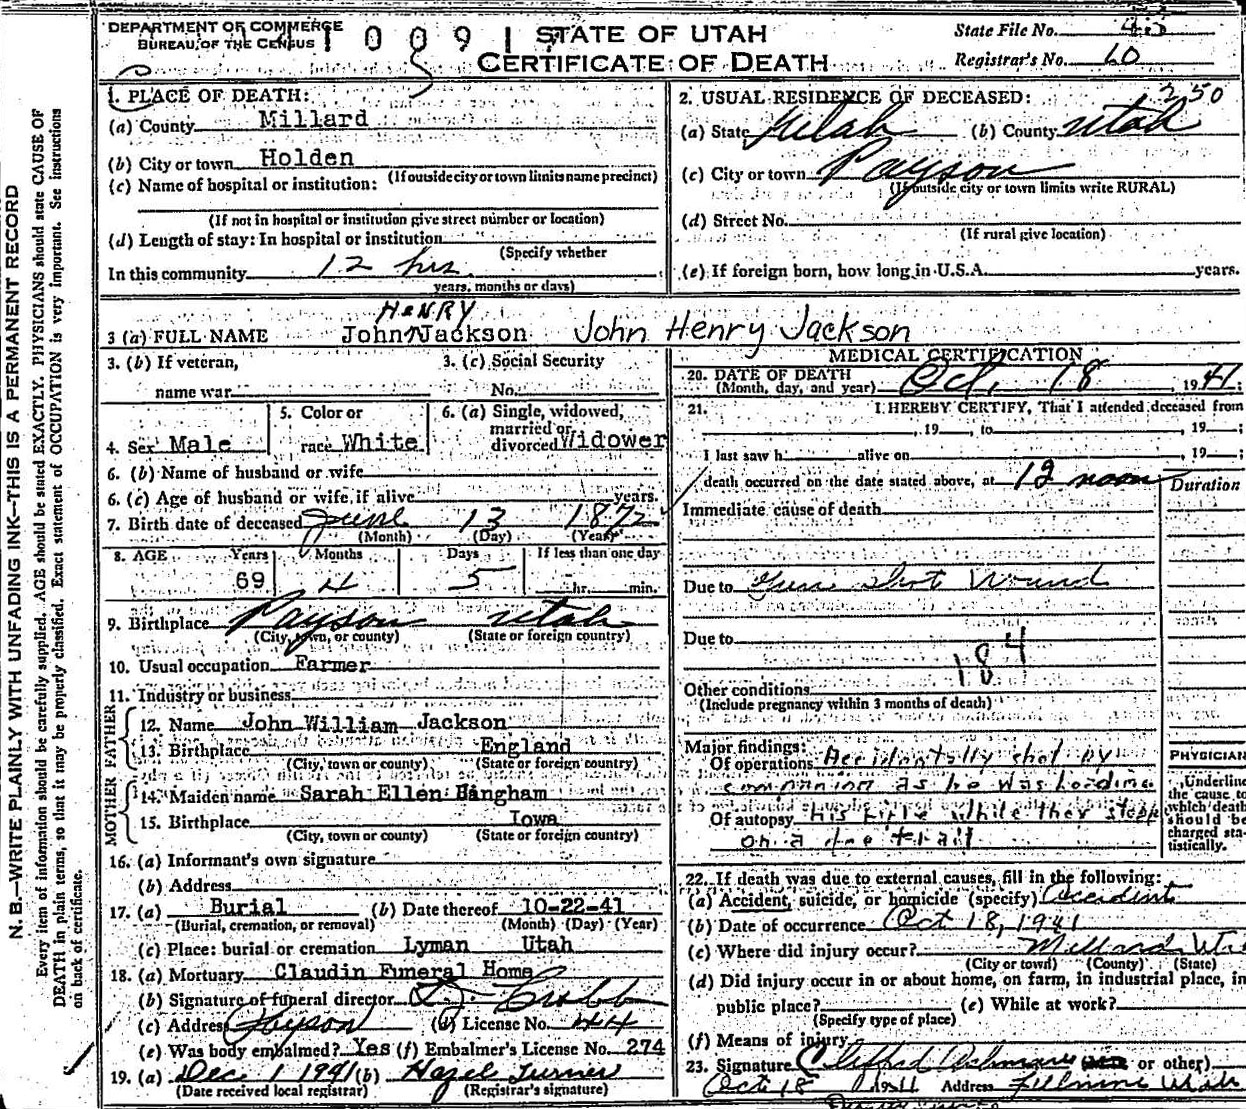 DEPARTMENT OF COMMERCE
BUREAU OF THE CENSUS
1 0 0 9 1
STATE OF UTAH
CERTIFICATE OF DEATH
State File No. 43
Registrar's No. 60
N. B.—WRITE PLAINLY WITH UNFADING INK—THIS IS A PERMANENT RECORD
Every item of information should be carefully supplied. AGE should be stated EXACTLY. PHYSICIANS should state CAUSE OF
DEATH in plain terms, so that it may be properly classified. Exact statement of OCCUPATION is very important. See instructions
on back of certificate.
1. PLACE OF DEATH:
(a) County Millard
(b) City or town Holden
(If outside city or town limits name precinct)
(c) Name of hospital or institution:
(If not in hospital or institution give street number or location)
(d) Length of stay: In hospital or institution
(Specify whether
In this community 12 hrs.
years, months or days)
2. USUAL RESIDENCE OF DECEASED:
250
(a) State Utah (b) County Utah
(c) City or town Payson
(If outside city or town limits write RURAL)
(d) Street No.
(If rural give location)
(e) If foreign born, how long in U.S.A. years.
HENRY
3 (a) FULL NAME John Jackson John Henry Jackson
3. (b) If veteran,
name war
3. (c) Social Security
No.
4. Sex Male
5. Color or
race White
6. (a) Single, widowed,
married or
divorced Widower
6. (b) Name of husband or wife
6. (c) Age of husband or wife, if alive years.
7. Birth date of deceased June 13 1872
(Month) (Day) (Year)
8. AGE Years Months Days If less than one day
69 4 5 hr. min.
9. Birthplace Payson Utah
(City, town, or county) (State or foreign country)
10. Usual occupation Farmer
11. Industry or business
FATHER
12. Name John William Jackson
13. Birthplace England
(City, town or county) (State or foreign country)
MOTHER
14. Maiden name Sarah Ellen Bingham
15. Birthplace Iowa
(City, town or county) (State or foreign country)
16. (a) Informant's own signature
(b) Address
17. (a) Burial (b) Date thereof 10-22-41
(Burial, cremation, or removal) (Month) (Day) (Year)
(c) Place: burial or cremation Lyman Utah
18. (a) Mortuary Claudin Funeral Home
(b) Signature of funeral director
(c) Address Payson (d) License No. 44
(e) Was body embalmed? Yes (f) Embalmer's License No. 274
19. (a) Dec 1 1941 (b) Hazel Turner
(Date received local registrar) (Registrar's signature)
MEDICAL CERTIFICATION
20. DATE OF DEATH
(Month, day, and year) Oct. 18, 1941;
21. I HEREBY CERTIFY, That I attended deceased from
, 19 , to , 19 ;
I last saw h alive on , 19 ;
death occurred on the date stated above, at 12 noon
Duration
Immediate cause of death
Due to Gun shot Wound
Due to
184
Other conditions
(Include pregnancy within 3 months of death)
Major findings:
Of operations Accidentally shot by
companion as he was loading
Of autopsy his rifle while they stopp
on a dee trail
PHYSICIAN
Underline
the cause to
which death
should be
charged sta-
tistically.
22. If death was due to external causes, fill in the following:
(a) Accident, suicide, or homicide (specify) Accident
(b) Date of occurrence Oct 18, 1941
(c) Where did injury occur? Millard Uta
(City or town) (County) (State)
(d) Did injury occur in or about home, on farm, in industrial place, in
public place? (e) While at work?
(Specify type of place)
(f) Means of injury
23. Signature Clifford or other)
Oct 18 1941 Address Fillmore Utah